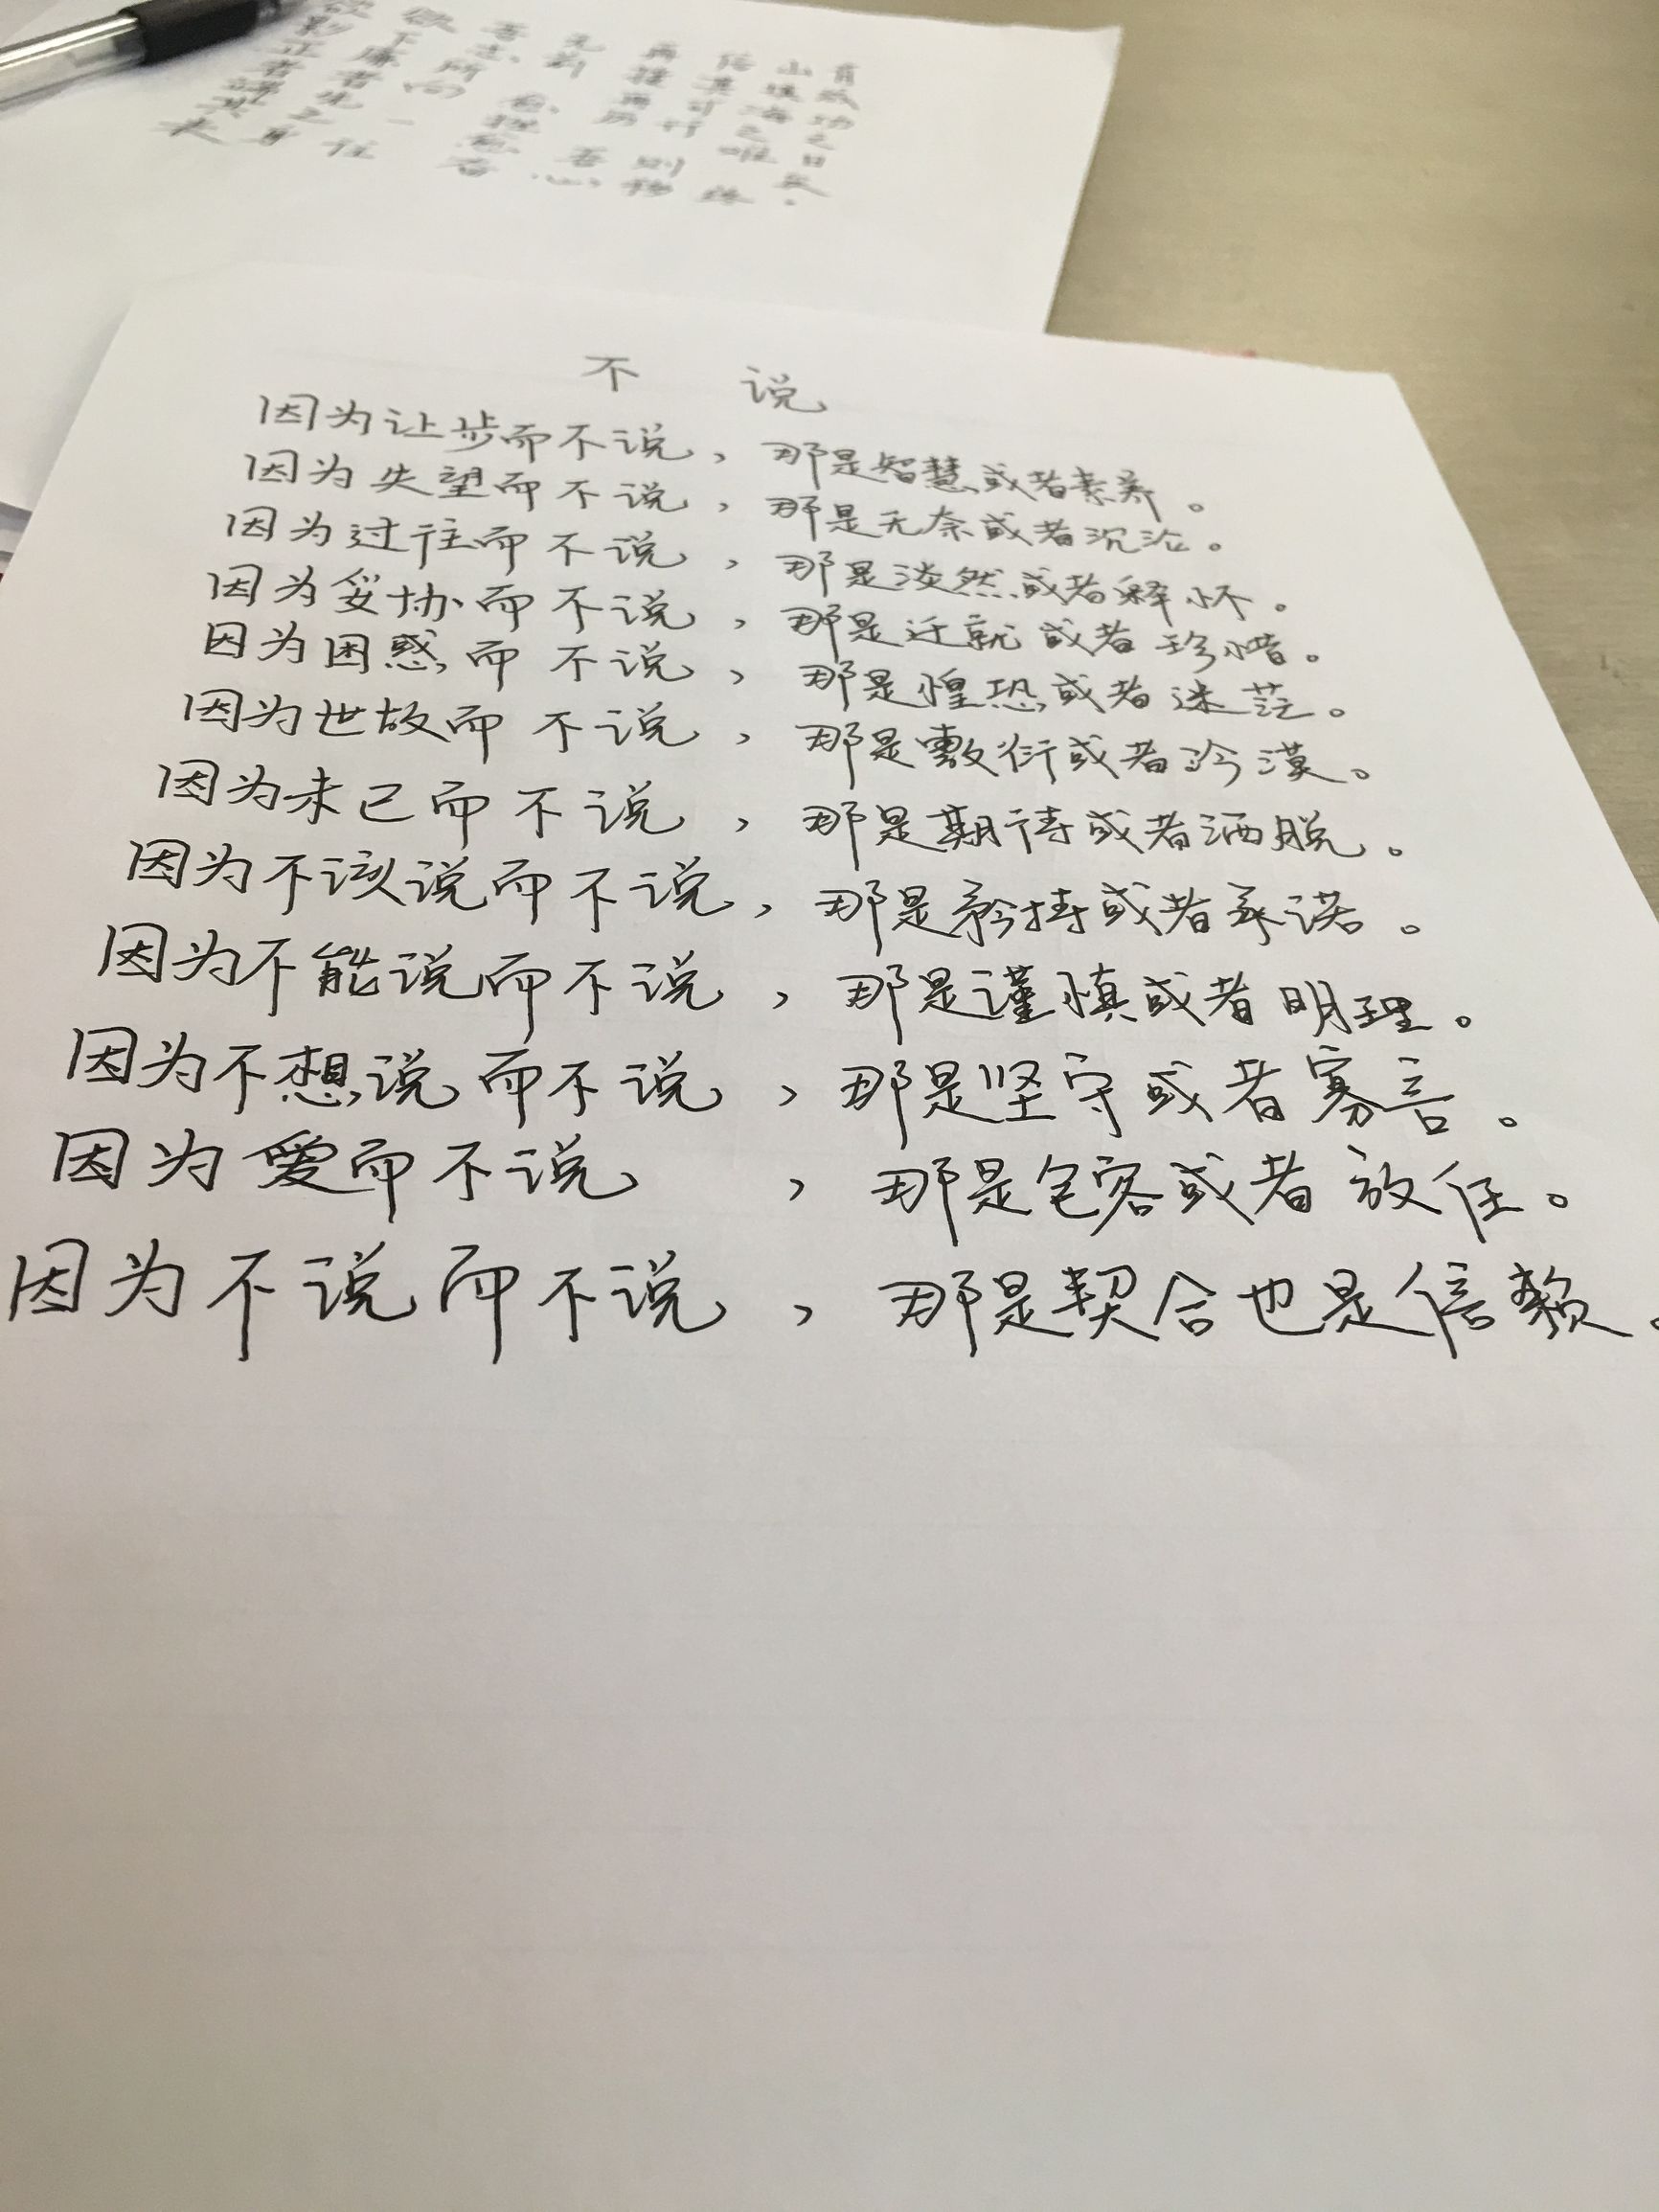 不 说
因为让步而不说，那是智慧或者素养。
因为失望而不说，那是无奈或者沉沦。
因为过往而不说，那是淡然或者释怀。
因为妥协而不说，那是迁就或者珍惜。
因为困惑而不说，那是惶恐或者迷茫。
因为世故而不说，那是敷衍或者冷漠。
因为未已而不说，那是期待或者洒脱。
因为不该说而不说，那是矜持或者承诺。
因为不能说而不说，那是谨慎或者明理。
因为不想说而不说，那是坚守或者寡言。
因为愛而不说，那是包容或者放任。
因为不说而不说，那是契合也是信赖。